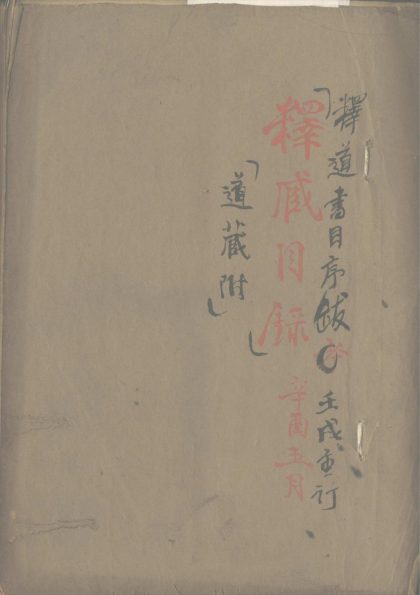 「釋道書目序跋 壬戌重訂
釋藏目錄」 辛酉五月
「道藏附」